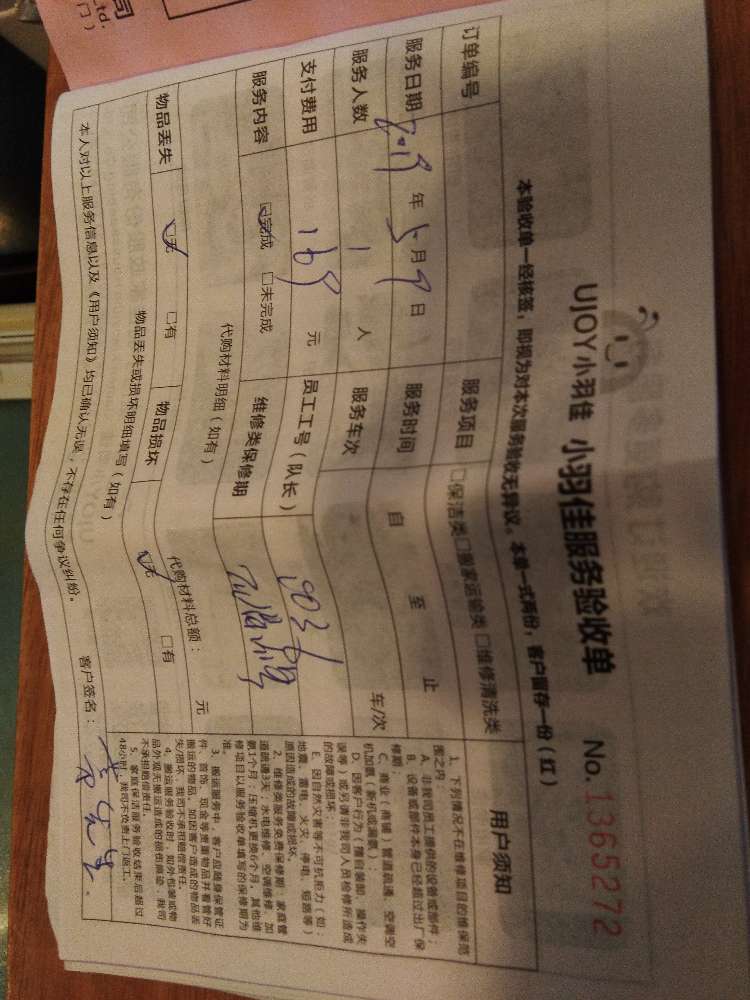 司
td.
门）
UJOY小羽佳 小羽佳服务验收单 No.1365272
本验收单一经核签，即视为对本次服务验收无异议。本单一式两份，客户留存一份（红）
订单编号 服务项目 □保洁类□搬家运输类□维修清洗类
服务日期 2019年5月9日 服务时间 自 至 止
服务人数 1 人 服务车次 车/次
支付费用 169 元 员工工号（队长）
服务内容 ☑完成 □未完成 维修类保修期
代购材料明细（如有） 代购材料总额： 元
物品丢失 ☑无 □有 物品损坏 ☑无 □有
物品丢失或损坏明细填写（如有）
本人对以上服务信息以及《用户须知》均已确认无误，不存在任何争议纠纷。 客户签名：
用户须知
1、下列情况不在维修项目的维保范
围之内：
A、非我司员工提供的设备或部件；
B、设备或部件本身已经超过出厂保
修期；
C、商业（商铺）管道疏通、空调空
机加氟（新机或漏氟）；
D、因客户行为（擅自装卸、操作失
误等）或另请非我司人员检修所造成
的故障或损坏；
E、因自然灾害等不可抗拒力（如：
地震、雷电、火灾、停电、短路等）
原因造成的故障或损坏。
2、维修类服务免费保修期：家庭管
道疏通3天；水电维修、空调维修、加
氟1个月；压缩机更换6个月，其他维
修项目以服务验收单填写的保修期为
准。
3、搬运服务中，客户应随身保管证
件、首饰、现金等贵重物品并看管好
搬运的物品，如因客户造成的物品丢
失/损坏，我司不承担赔偿责任。
4、搬运服务验收时，如外包装或物
品外观无搬运造成的损伤痕迹，我司
不承担赔偿责任。
5、家庭保洁服务验收结束后超过
48小时，我司不负责上门返工。